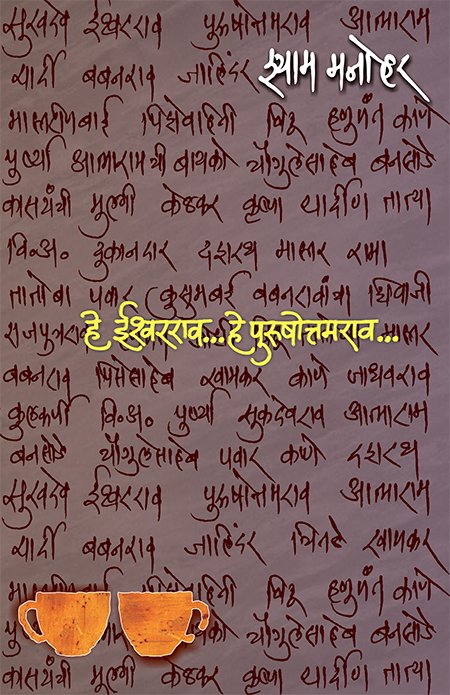 सुखदेव ईश्वरराव पुरूषोत्तमराव आत्माराम
यादी बबनराव जालिंदर
श्याम मनोहर
मास्तरीणबाई पिसेवहिनी चिटू हणुमंत काणे
पुष्पी आत्मारामची बायको चौगुलेसाहेब बनसोडे
कासयंत्री मुलगी केळकर कृष्णा यादीण तात्या
वि.अ. दुकानदार दशरथ मास्तर रामा
तातोबा पवार कुसुमबाई बबनरावांचा शिवाजी
हे ईश्वरराव... हे पुरूषोत्तमराव...
बबनराव पिसेसाहेब खामकर काणे जाधवराव
कुलकर्णी वि.अ. पुष्पी सुकदेवराव आत्माराम
बनसोडे चौगुलेसाहेब पवार काणे दशरथ
सुखदेव ईश्वरराव पुरूषोत्तमराव आत्माराम
यादी बबनराव जालिंदर चितळे खामकर
चिटू हणुमंत काणे
चौगुलेसाहेब बनसोडे
कासयंत्री मुलगी केळकर कृष्णा यादीण तात्या